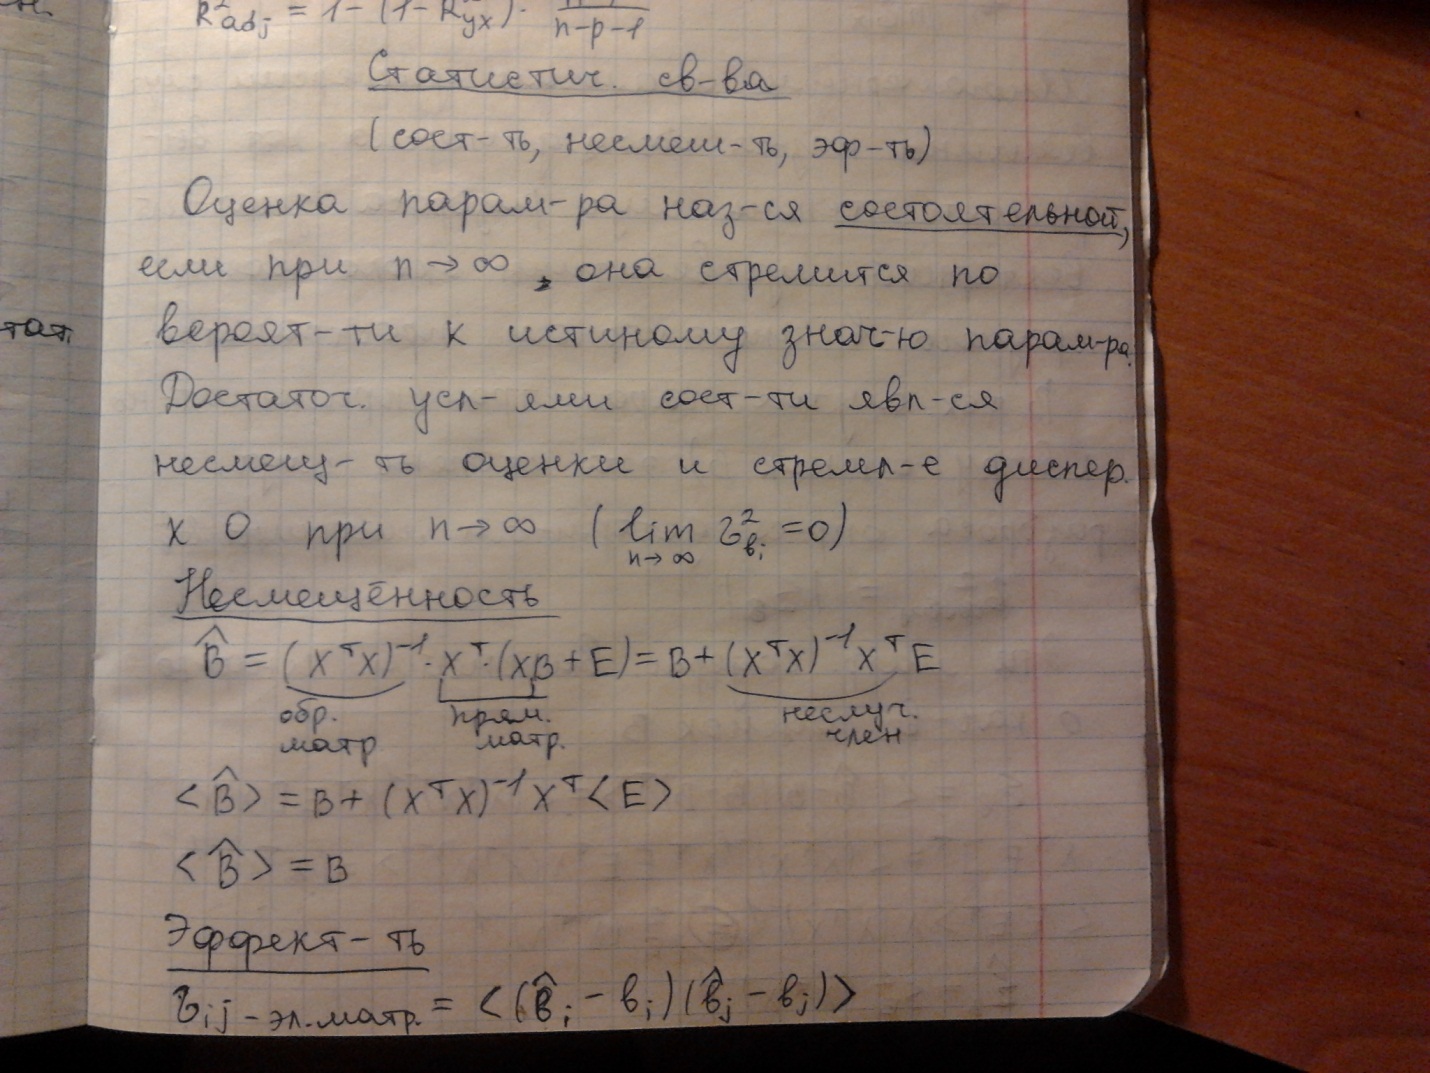 н.
R²adj = 1 - (1 - R²yx) · n-1/n-p-1
Статистич. св-ва
(сост-ть, несмеш-ть, эф-ть)
Оценка парам-ра наз-ся состоятельной,
если при n→∞, она стремится по
тат.
вероят-ти к истиному знач-ю парам-ра.
Достаточ. усл-ями сост-ти явл-ся
несмещ-ть оценки и стремл-е диспер.
к 0 при n→∞ (lim n→∞ σ²вᵢ = 0)
Несмещённость
B̂ = (XᵀX)⁻¹ · Xᵀ · (XB + E) = B + (XᵀX)⁻¹XᵀE
обр. прям. неслуч.
матр матр. член
<B̂> = B + (XᵀX)⁻¹Xᵀ<E>
<B̂> = B
Эффект-ть
σij - эл. матр. = <(b̂ᵢ - bᵢ)(b̂ⱼ - bⱼ)>